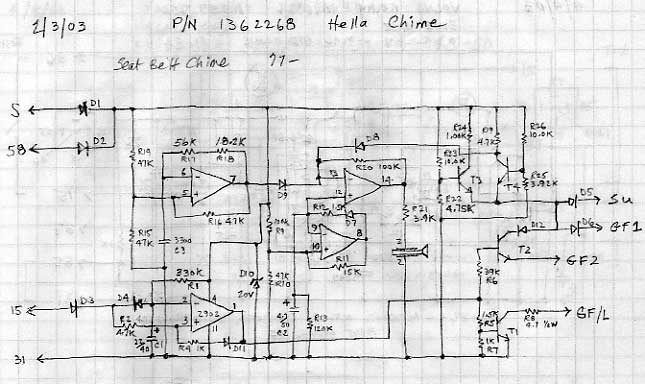 2/3/03 P/N 1362268 Hella Chime
Seat Belt Chime 77-
S D1
58 D2
D8
R24 1.00K
R9 4.7K
R26 10.0K
R19 47K
56K R17
18.2K R18
R20 100K
R23 10.0K
T3
T4
R25 3.92K
6 7 5
D9
13 14 12
R16 47K
R12 1.5K
D7
R21 3.9K
R22 4.75K
D5 Su
D12
D6 GF1
R15 47K
3300 C3
R9
9 8 10
T2
GF2
R11 15K
330K R1
D10 20V
47K R10
39K R6
15 D3
D4
2 4 1 3 11
2902
R2 4.7K
C1
R4 1K
D11
C2
R13 120K
1.5K R5
1K R7
T1
R8 4.7 ½W
GF/L
31